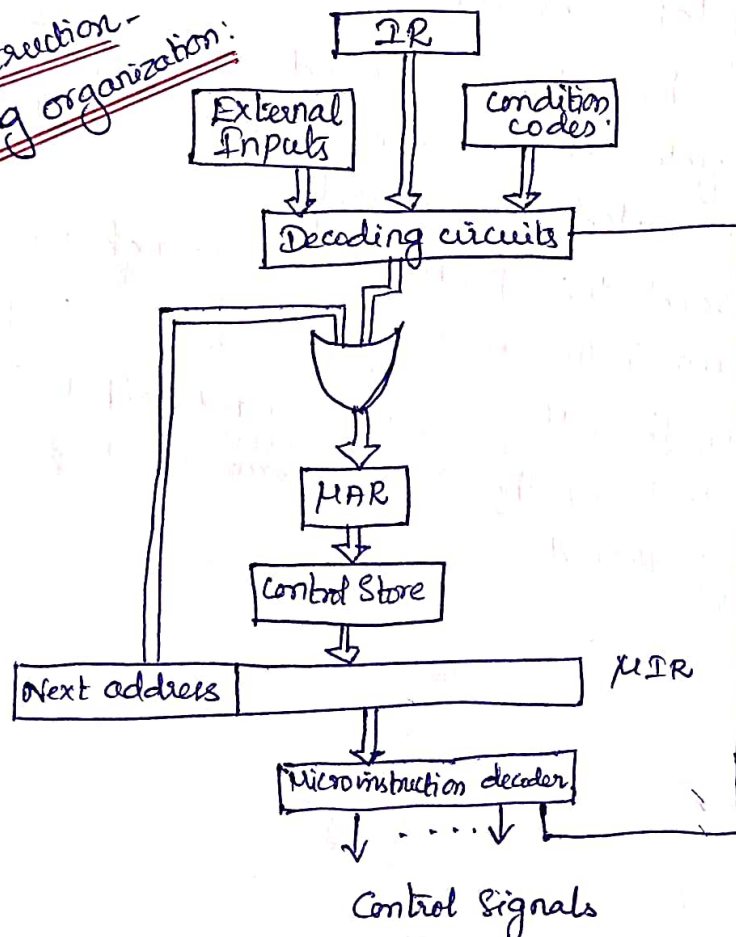 organization:
IR
External
Inputs
Condition
codes.
Decoding circuits
μAR
Control Store
Next address
μIR
Microinstruction decoder
Control Signals